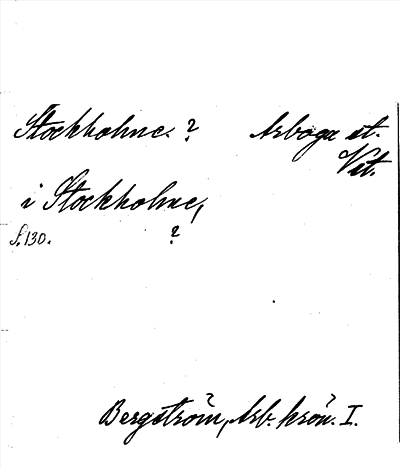 Stockholme. ? Arboga st.
Vst.
i Stockholme,
S. 130. ?
Bergström, Arb. krön. I.